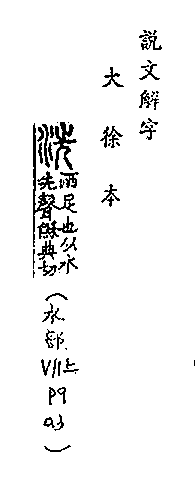 說文解字
大徐本
洗
洒足也从水
先聲穌典切
(水部
VII上
P9
a3)